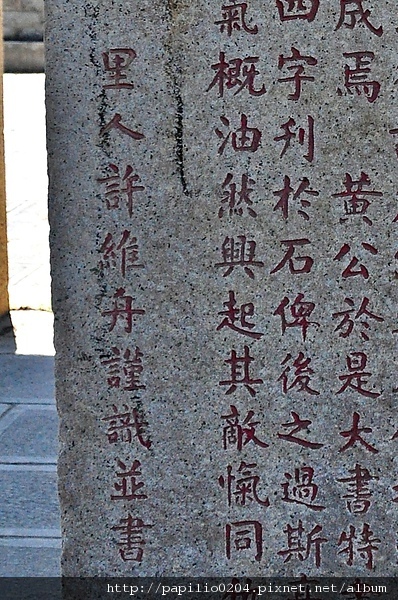 成焉 黄公於是大書特
四字刊於石俾後之過斯
氣概油然興起其敵愾同
里人許維舟謹識並書
http://papilio0204.pixnet.net/album